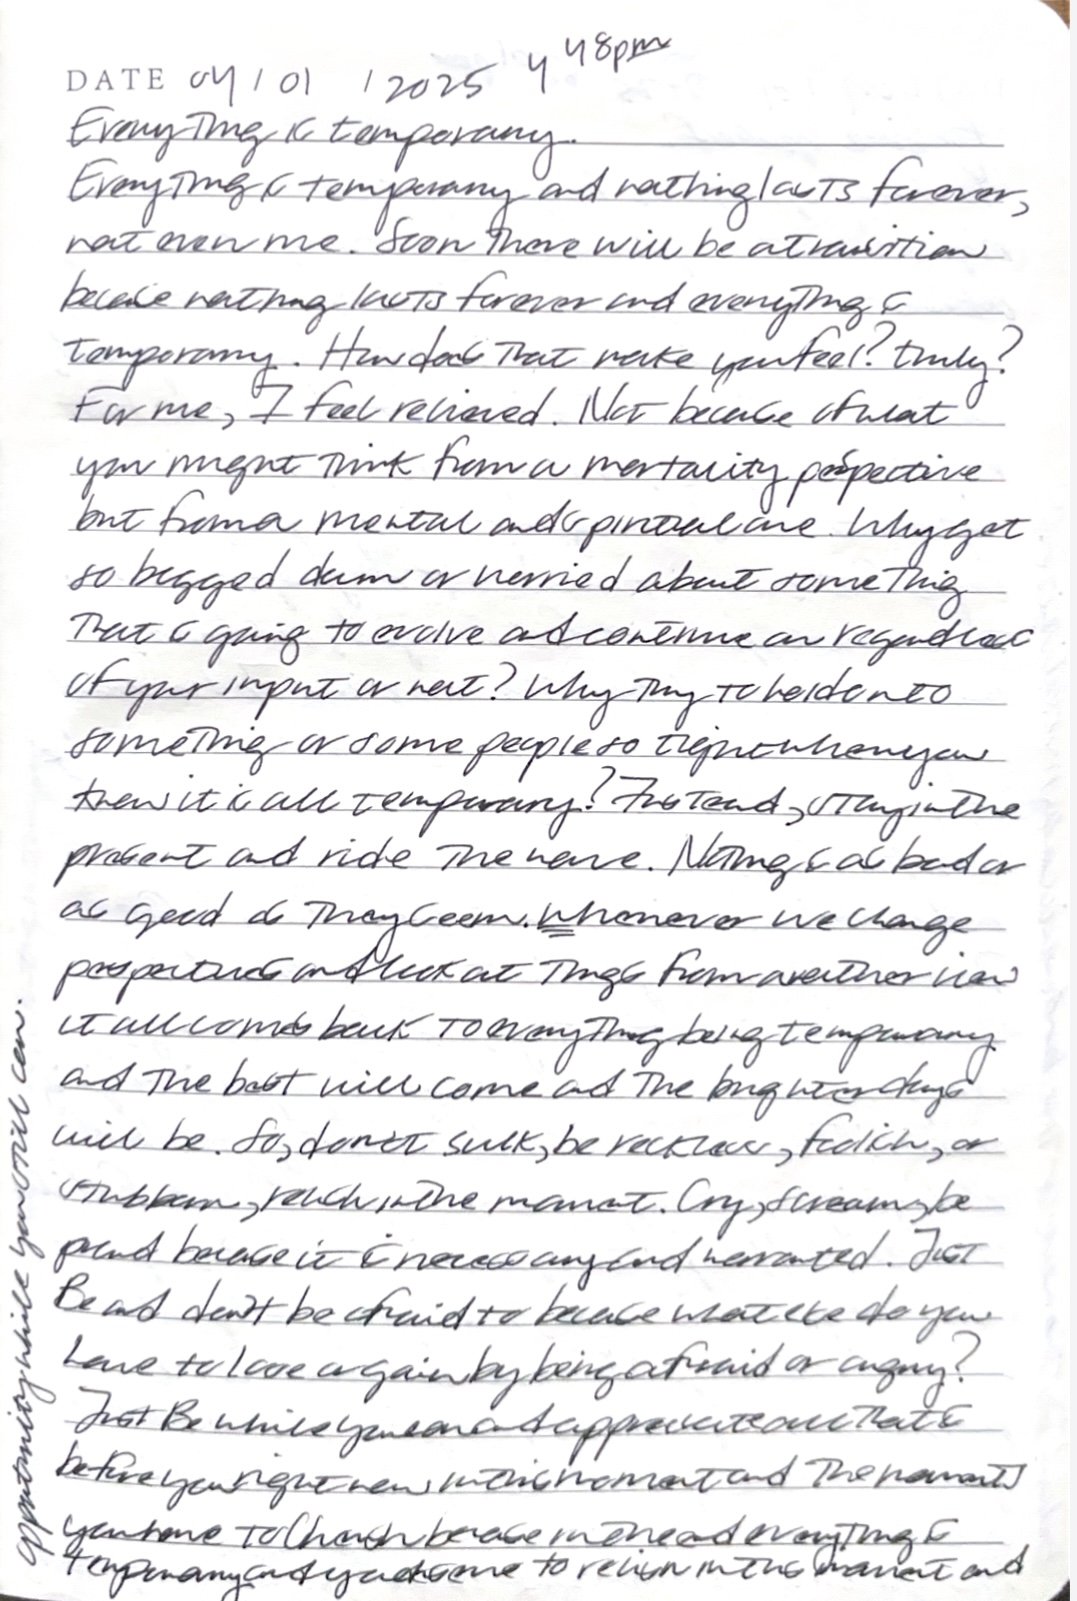 DATE 04 / 01 / 2025 4 48pm
Everything is temporary.
Everything is temporary and nothing lasts forever,
not even me. Soon there will be a transition
because nothing lasts forever and everything is
temporary. How does that make you feel? truly?
For me, I feel relieved. Not because of what
you might think from a mortality perspective
but from a mental and spiritual one. Why get
so bogged down or worried about something
that is going to evolve and continue on regardless
of your input or not? Why try to hold on to
something or some people so tight when you
know it is all temporary? Instead, stay in the
present and ride the wave. Nothing is as bad or
as good as they seem. Whenever we change
perspectives and look at things from another view
it all comes back to everything being temporary
and the best will come and the brighter days
will be. So, don't sulk, be reckless, foolish, or
stubborn, relish in the moment. Cry, scream, be
proud because it is necessary and warranted. Just
Be and don't be afraid to because what else do you
have to lose or gain by being afraid or angry?
Just Be while you can and appreciate all that is
before you right now in this moment and the moments
you have to cherish because in the end everything is
temporary and you deserve to relish in this moment and
opportunity while you still can.